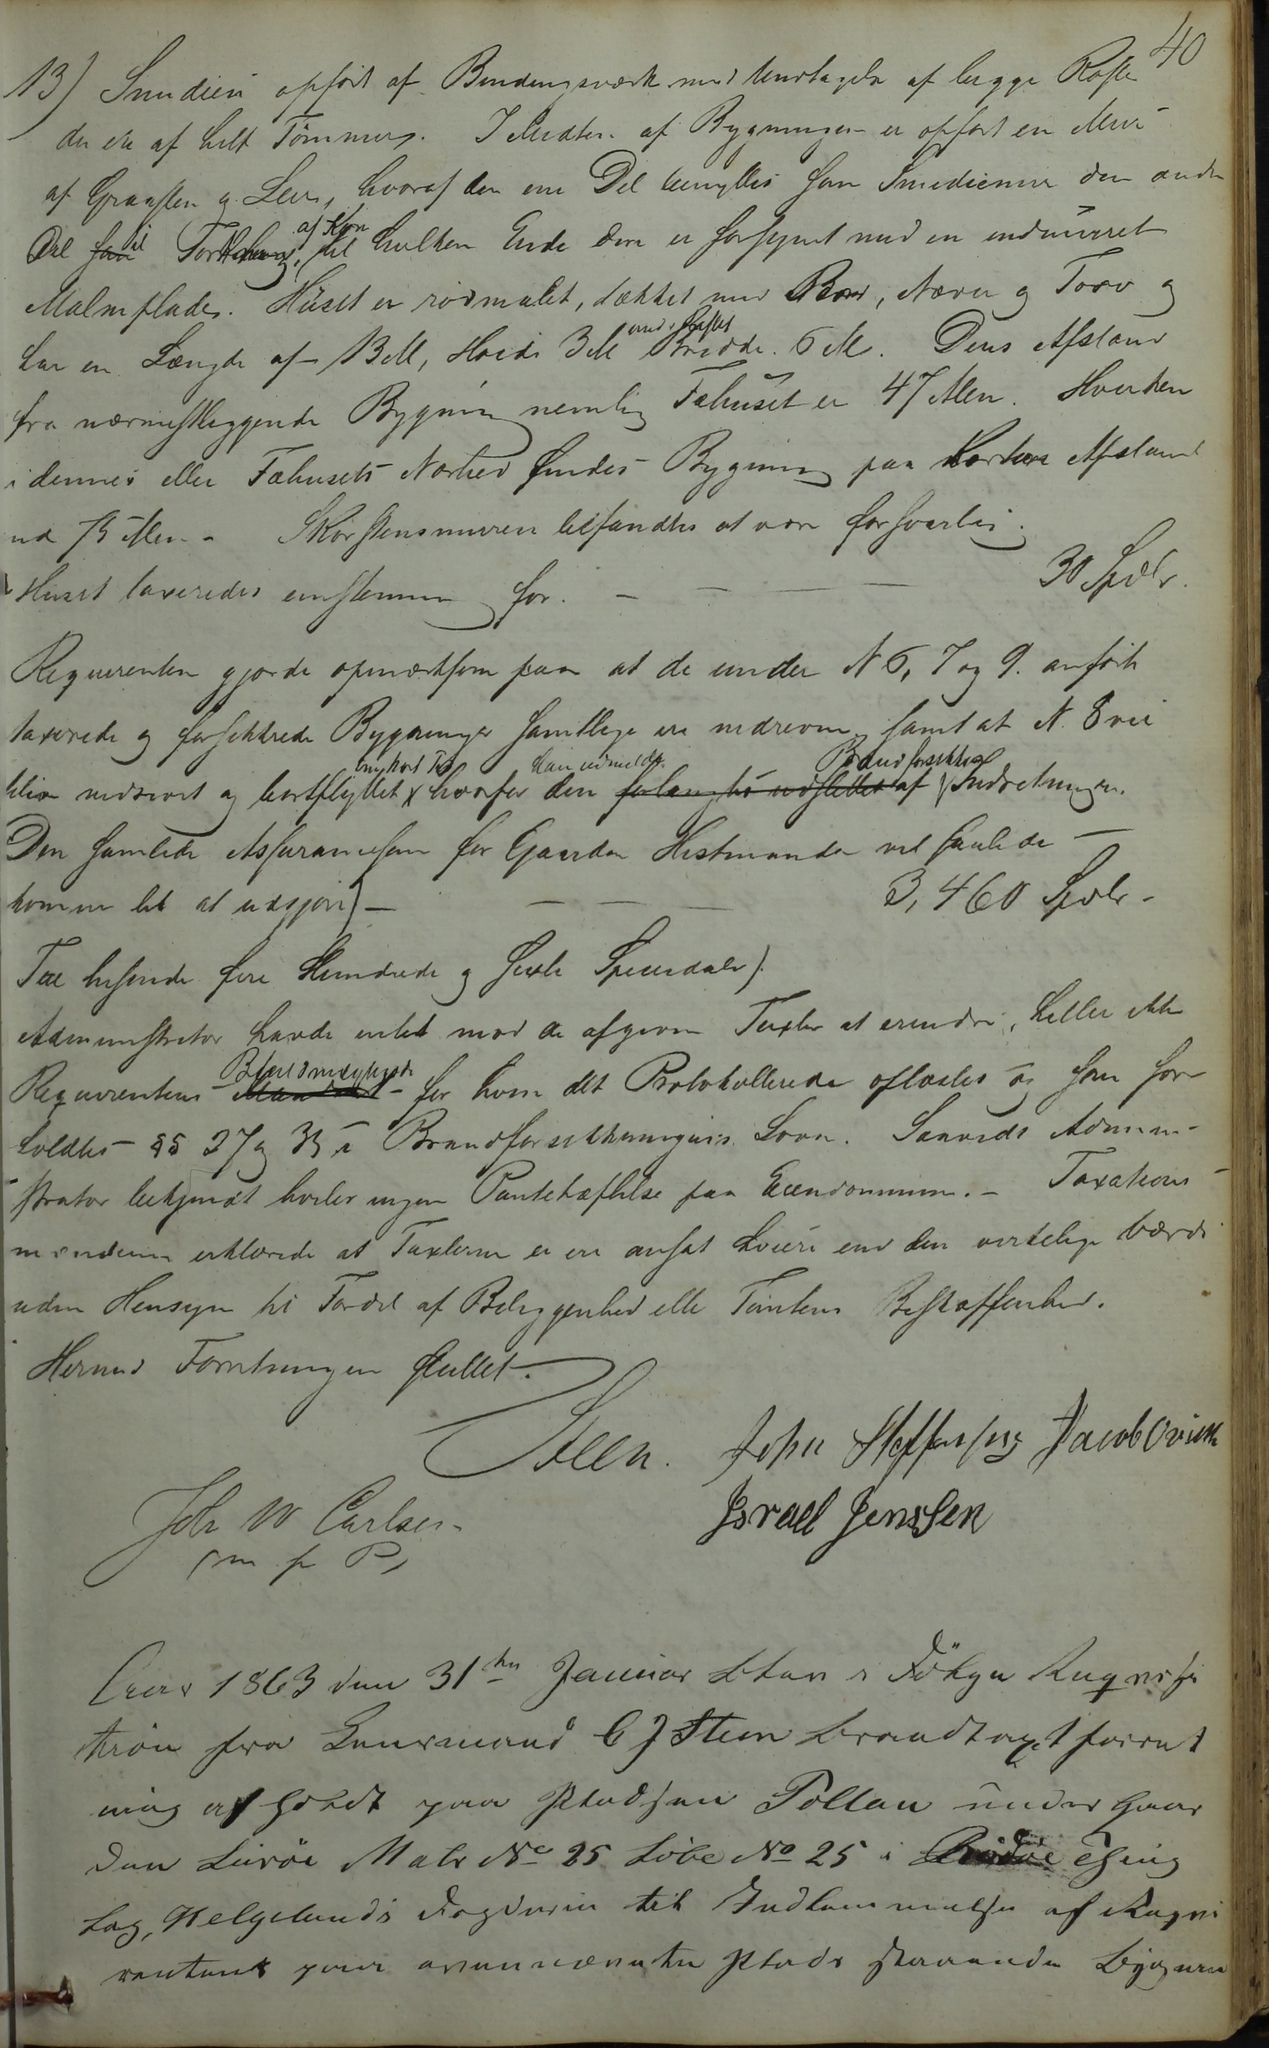 40
13) Smedien opført af Bindingsværk med Undtagelse af begge Røste
der ere af helt Tømmer. I Midten af Bygningen er opført en Muur
af Graasten og Leer, hvoraf den ene Del benyttes som Smedie den anden
Del til af Korn til hvilken Ende den er forsynet med en indmuret
Malmplade. Huset er rødmalet, dækket med Bord, Næver og Torv og
har en Længde af 13 Al, Høide 3 Al Bredde 6 Al. Dens Afstand
fra nærmestliggende Bygning nemlig Fæhuset er 47 Alen. Hverken
i dennes eller Fæhusets Nærhed findes Bygning paa kortere Afstand
end 75 Alen. Skorstensmuren befandtes at være forsvarlig.
Huset taxeredes enstemmig for. – – – 30 Spdlr.
Reqvirenten gjorde opmærksom paa at de under N 6, 7 og 9. anførte
taxerede og forsikkrede Bygninger samtlige ere nedrevne, samt at N. 8 vil
blive nedrevet og bortflyttet hvorfor den af Brandforsikkrings Indretningen.
Den samlede Assurancesum for Gaarden Hestmanden vil saaledes
komme til at udgjøre) – – – – 3,460 Spdlr.
Tre tusende fire Hundrede og sexti Speciedaler).
Administrator havde intet mod de afgivne Taxter at erindre, heller ikke
Reqvirentens Befuldmægtigede for hvem det Protokollerede oplæstes og som fore
holdtes §§ 27 og 33 i Brandforsikkringens Lovn. Saavidt Admini-
strator bekjendt hviler ingen Pantehæftelse paa Eiendommen. – Taxations
mændene erklærede at Taxterne ei ere ansat høiere end den virkelige Værdi
uden Hensyn til Fordel af Beliggenhed eller Tomtens Beskaffenhed.
Hermed Forretningen sluttet.
Steen. John Steffensen Jacob
Joh W Carlsen Israel Jenssen
(m. p. P.)
Aar 1863 den 31te Januar blev i Følge Reqvisi
tion fra Leensmand C J Steen Brandtaxtforret
ning afholdt paa Pladsen Pollan under Gaar
den Lurøe Matr No 25 Løbe No 25 i Thing
lag, Helgelands Fogderie til Indlemmelse af Reqvi
rentens paa ovennævnte Plads staaende Bygnin